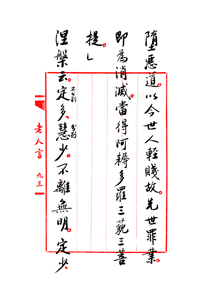 墮惡道。以今世人輕賤故。先世罪業。
即為消滅。當得阿耨多羅三藐三菩
提。」
涅槃云。定多慧少。不離無明。定少
老人言 九三